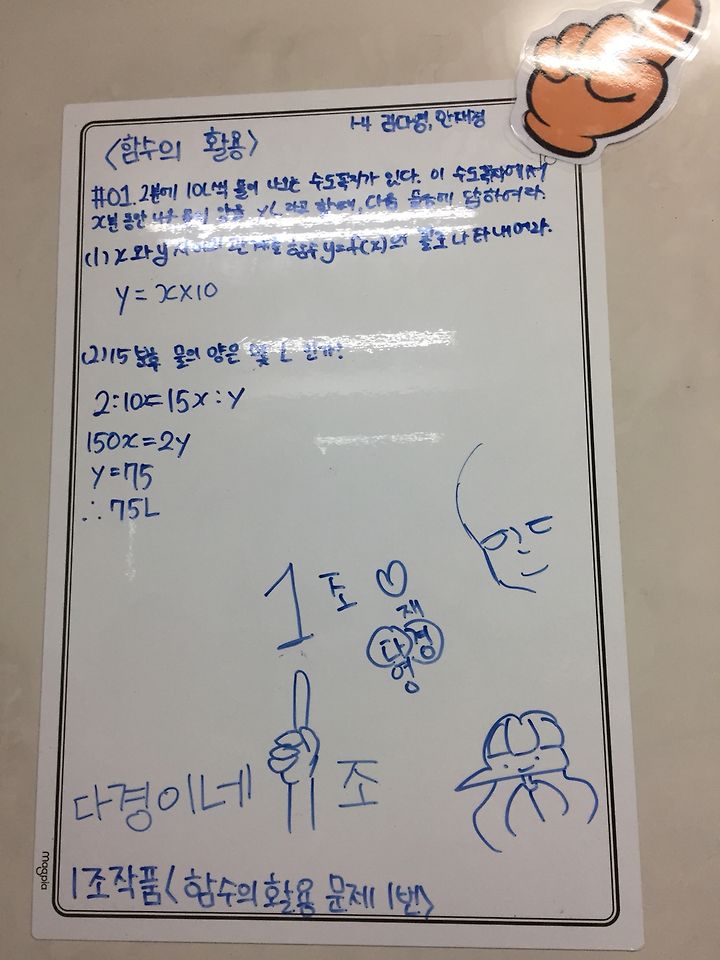 <함수의 활용>
1-4 김다영, 안재경
#01. 2분에 10L씩 물이 나오는 수도꼭지가 있다. 이 수도꼭지에서
x분 동안 나온 물의 양을 yL라고 할때, 다음 물음에 답하여라.
(1) x와 y 사이의 관계를 함수 y=f(x)의 꼴로 나타내어라.
y = x×10
(2) 15분후 물의 양은 몇 L 인가?
2:10=15x:y
150x=2y
y=75
∴75L
1조♡
재
다경
영
다경이네 조
1조작품<함수의활용 문제 1번>
magpia